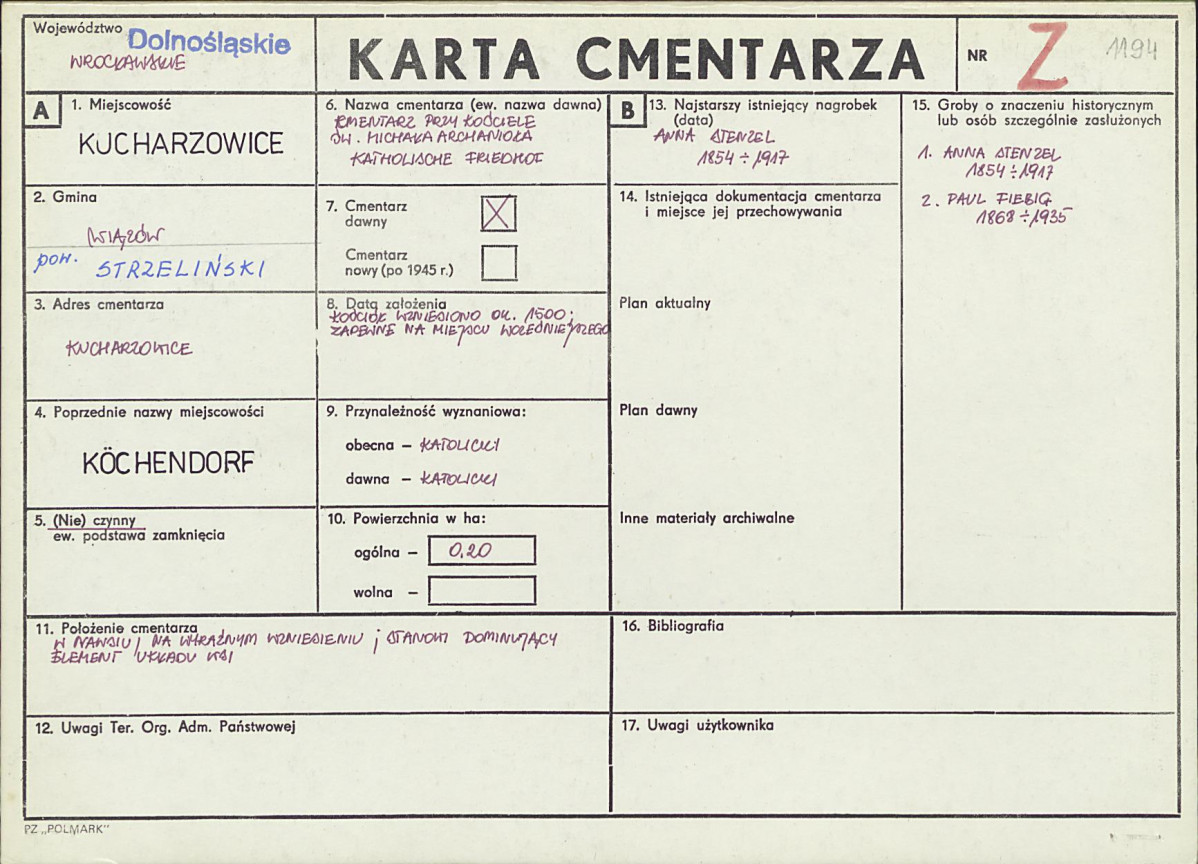 Województwo Dolnośląskie
WROCŁAWSKIE
KARTA CMENTARZA
NR Z 1194
A
1. Miejscowość
KUCHARZOWICE
2. Gmina
WIĄZÓW
pow. STRZELIŃSKI
3. Adres cmentarza
KUCHARZOWICE
4. Poprzednie nazwy miejscowości
KÖCHENDORF
5. (Nie) czynny
ew. podstawa zamknięcia
6. Nazwa cmentarza (ew. nazwa dawna)
CMENTARZ PRZY KOŚCIELE
ŚW. MICHAŁA ARCHANIOŁA
KATHOLISCHE FRIEDHOF
7. Cmentarz
dawny
Cmentarz
nowy (po 1945 r.)
8. Data założenia
KOŚCIÓŁ WZNIESIONO OK. 1500;
ZAPEWNE NA MIEJSCU WCZEŚNIEJSZEGO
9. Przynależność wyznaniowa:
obecna – KATOLICKI
dawna – KATOLICKI
10. Powierzchnia w ha:
ogólna – 0.20
wolna –
11. Położenie cmentarza
W NAWSIU, NA WYRAŹNYM WZNIESIENIU; STANOWI DOMINUJĄCY
ELEMENT UKŁADU WSI
12. Uwagi Ter. Org. Adm. Państwowej
B
13. Najstarszy istniejący nagrobek
(data)
ANNA STENZEL
1854 ÷ 1917
14. Istniejąca dokumentacja cmentarza
i miejsce jej przechowywania
Plan aktualny
Plan dawny
Inne materiały archiwalne
15. Groby o znaczeniu historycznym
lub osób szczególnie zasłużonych
1. ANNA STENZEL
1854 ÷ 1917
2. PAUL FIEBIG
1868 ÷ 1935
16. Bibliografia
17. Uwagi użytkownika
PZ „POLMARK"